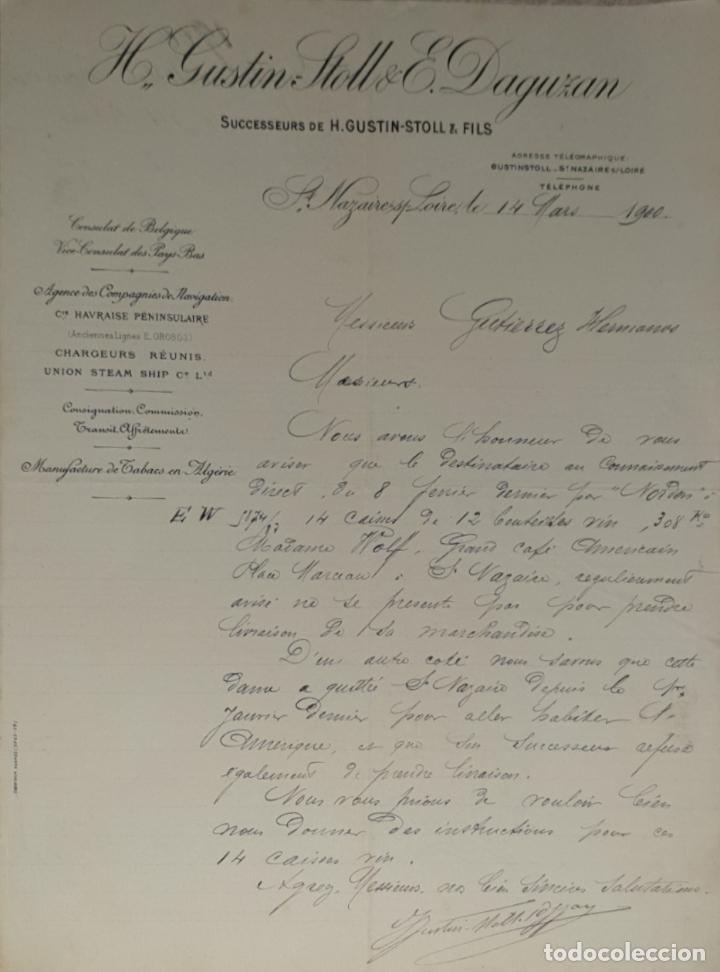 H. Gustin-Stoll & E. Daguzan
SUCCESSEURS DE H. GUSTIN-STOLL & FILS
ADRESSE TÉLÉGRAPHIQUE:
GUSTINSTOLL_ST NAZAIRE S/LOIRE
TÉLÉPHONE
St Nazaire s/ Loire, le 14 Mars 1900.
Consulat de Belgique
Vice-Consulat des Pays-Bas
Agence des Compagnies de Navigation
Cie HAVRAISE PÉNINSULAIRE
(Anciennes Lignes E. GROSOS)
CHARGEURS RÉUNIS.
UNION STEAM SHIP Co Ltd
Consignation, Commission,
Transit, Affrètements
Manufacture de Tabacs en Algérie
Messieurs Gutierrez Hermanos
Messieurs.
Nous avons l'honneur de vous
aviser que le destinataire au Connaissement
direct, du 8 fevrier dernier par "Norden"
E W 14 caisses de 12 bouteilles vin, 308 Ko
Madame Wolf, Grand café Americain
Place Marceau à St Nazaire, regulierement
avisé ne se presente pas pour prendre
livraison de sa marchandise.
D'un autre coté nous savons que cette
dame a quitté St Nazaire depuis le
Janvier dernier pour aller habiter l'
Amerique, et que son successeur refuse
également de prendre livraison.
Nous vous prions de vouloir bien
nous donner des instructions pour ces
14 caisses vin.
Agreez, Messieurs, nos bien sincères salutations.
Gustin-Stoll
todocoleccion
todocoleccion.net